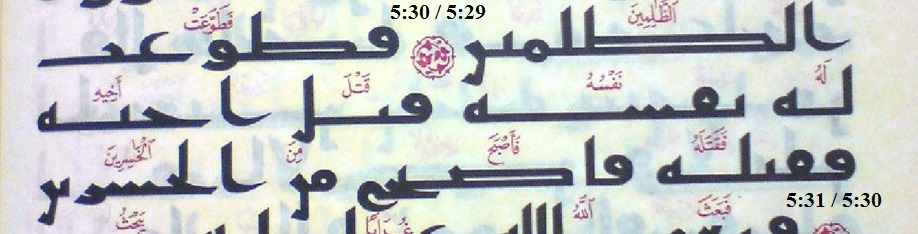 5:30 / 5:29
ٱلظَّٰلِمِينَ فَطَوَّعَتْ
الظلمين فطوعت
لَهُۥ نَفْسُهُۥ قَتْلَ أَخِيهِ
له نفسه قتل اخيه
فَقَتَلَهُۥ فَأَصْبَحَ مِنَ ٱلْخَٰسِرِينَ
فقتله فاصبح من الخسرين
5:31 / 5:30
فَبَعَثَ ٱللَّهُ غُرَابًا يَبْحَثُ